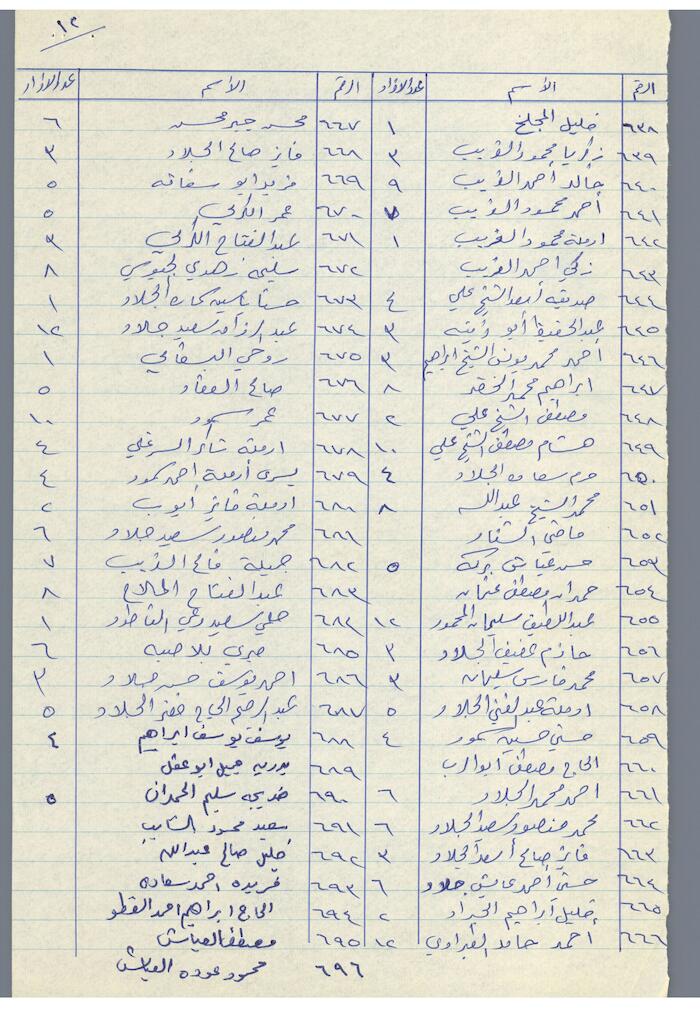 ١٢
الرقم الأسم عدد الافراد الرقم الأسم عدد الافراد
٦٣٨ خليل المجلخ ١ ٦٦٧ محسن جبر محسن ٦
٦٣٩ زكريا محمود الغريب ٣ ٦٦٨ فايز صالح الجلاد ٣
٦٤٠ خالد أحمد الغريب ٩ ٦٦٩ فريد ابو سفاقه ٥
٦٤١ أحمد محمود الغريب ٧ ٦٧٠ عمر الكرمي ٥
٦٤٢ ارملة محمود الغريب ١ ٦٧١ عبد الفتاح الكرمي ٣
٦٤٣ زكي احمد الغريب ٦٧٢ سليمه زهدي الجيوسي ٨
٦٤٤ صديقه أسعد الشيخ علي ٤ ٦٧٣ الجلاد ١
٦٤٥ عبد الحفيظ أبو ٣ ٦٧٤ عبد الرزاق سعيد جلاد ١٢
٦٤٦ أحمد محمد يونس الشيخ ابراهيم ٣ ٦٧٥ روحي ١
٦٤٧ ابراهيم محمد ٨ ٦٧٦ صالح العقاد ٥
٦٤٨ مصطفى الشيخ علي ٢ ٦٧٧ عمر سمور ١٠
٦٤٩ هشام مصطفى الشيخ علي ١٠ ٦٧٨ ارملة شاكر السرغلي ٤
٦٥٠ الجلاد ٤ ٦٧٩ يسرى أرملة احمد ٤
٦٥١ محمد الشيخ عبدالله ٨ ٦٨٠ ارملة فايز أيوب ٢
٦٥٢ ٦٨١ محمد منصور سعيد جلاد ٦
٦٥٣ حسن عياش بركه ٥ ٦٨٢ جميلة الغريب ٧
٦٥٤ حمدان مصطفى عثمان ٦٨٣ عبد الفتاح الملاح ٨
٦٥٥ عبد اللطيف سليمان المحمود ١٢ ٦٨٤ سعيد الناطور ١
٦٥٦ حازم عفيف الجلاد ٣ ٦٨٥ صبري بلاصبه ٦
٦٥٧ محمد فارس سليمان ٣ ٦٨٦ احمد يوسف حسن جلاد ٣
٦٥٨ ارملة عبد الغني الجلاد ٥ ٦٨٧ عبد الرحيم الحاج خضر الجلاد ٥
٦٥٩ حسني حسين سمور ٤ ٦٨٨ يوسف يوسف ابراهيم ٤
٦٦٠ الحاج مصطفى ابو الرب ٦٨٩ بدريه جميل ابو عقل
٦٦١ احمد محمد الجلاد ٦ ٦٩٠ خديجه سليم الحمدان ٥
٦٦٢ محمد منصور سعد الجلاد ٦ ٦٩١ سعيد محمود الشايب
٦٦٣ فايز صالح أسعد الجلاد ٣ ٦٩٢ خليل صالح عبدالله
٦٦٤ حسني أحمد عايش جلاد ٦ ٦٩٣ فريده احمد سعاده
٦٦٥ خليل ابراهيم الجراد ٢ ٦٩٤ الحاج ابراهيم احمد القطو
٦٦٦ أحمد حامد القبراوي ١٢ ٦٩٥ مصطفى العياش
٦٩٦ محمود عوده العياش